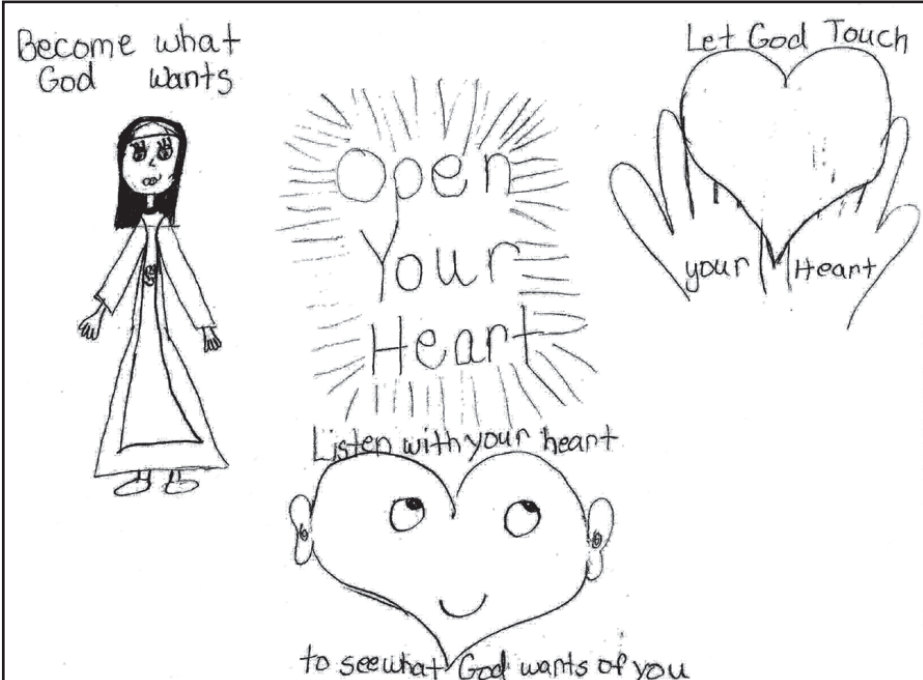 Become what
God wants
Open
Your
Heart
Let God Touch
your Heart
Listen with your heart
to see what God wants of you